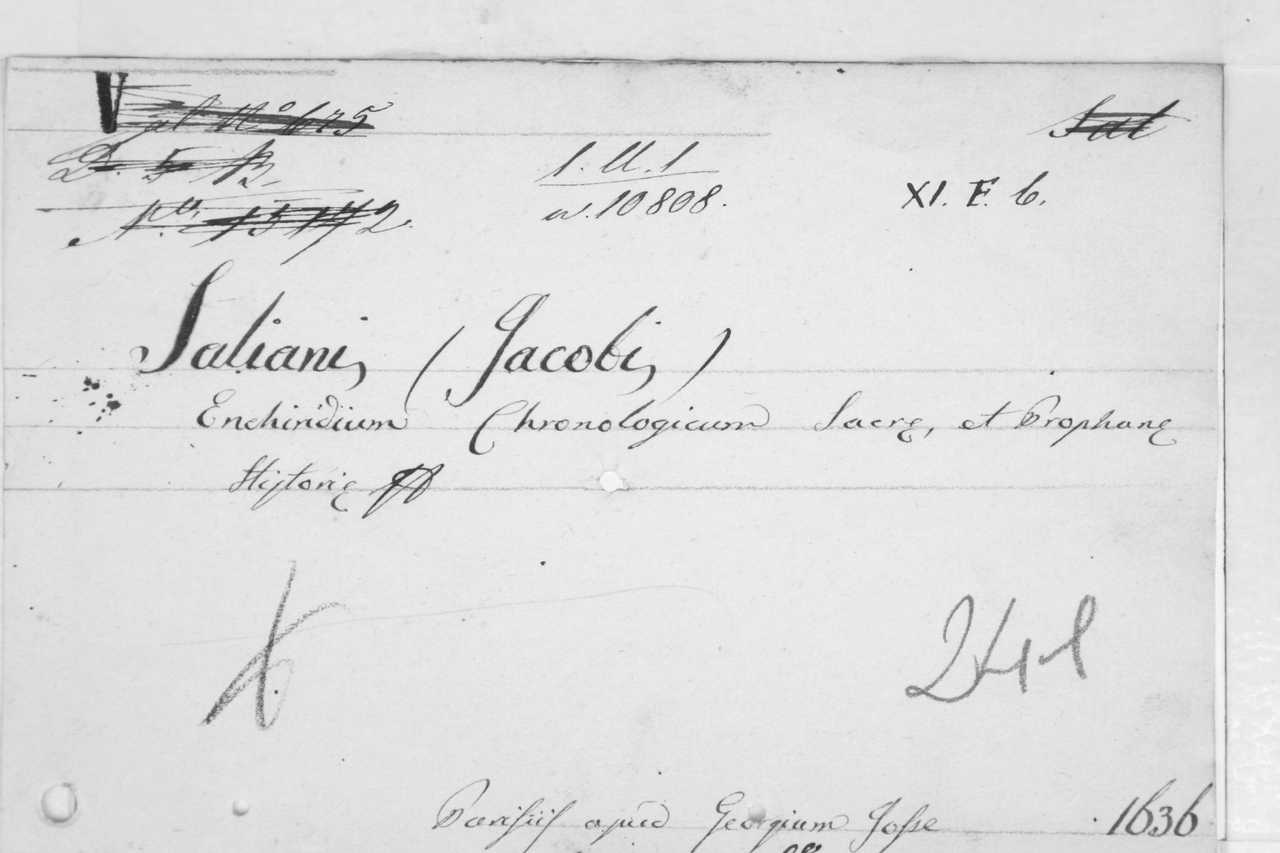 Nº 675
Sal
D. 5 B.
1. U. 1
Nº. 15172.
w. 10808.
XI. F. 6.
Saliani, (Jacobi,)
Enchiridium Chronologicum Sacrę, et Prophanę
Historię
241
Parisiis apud Georgium Josse 1636